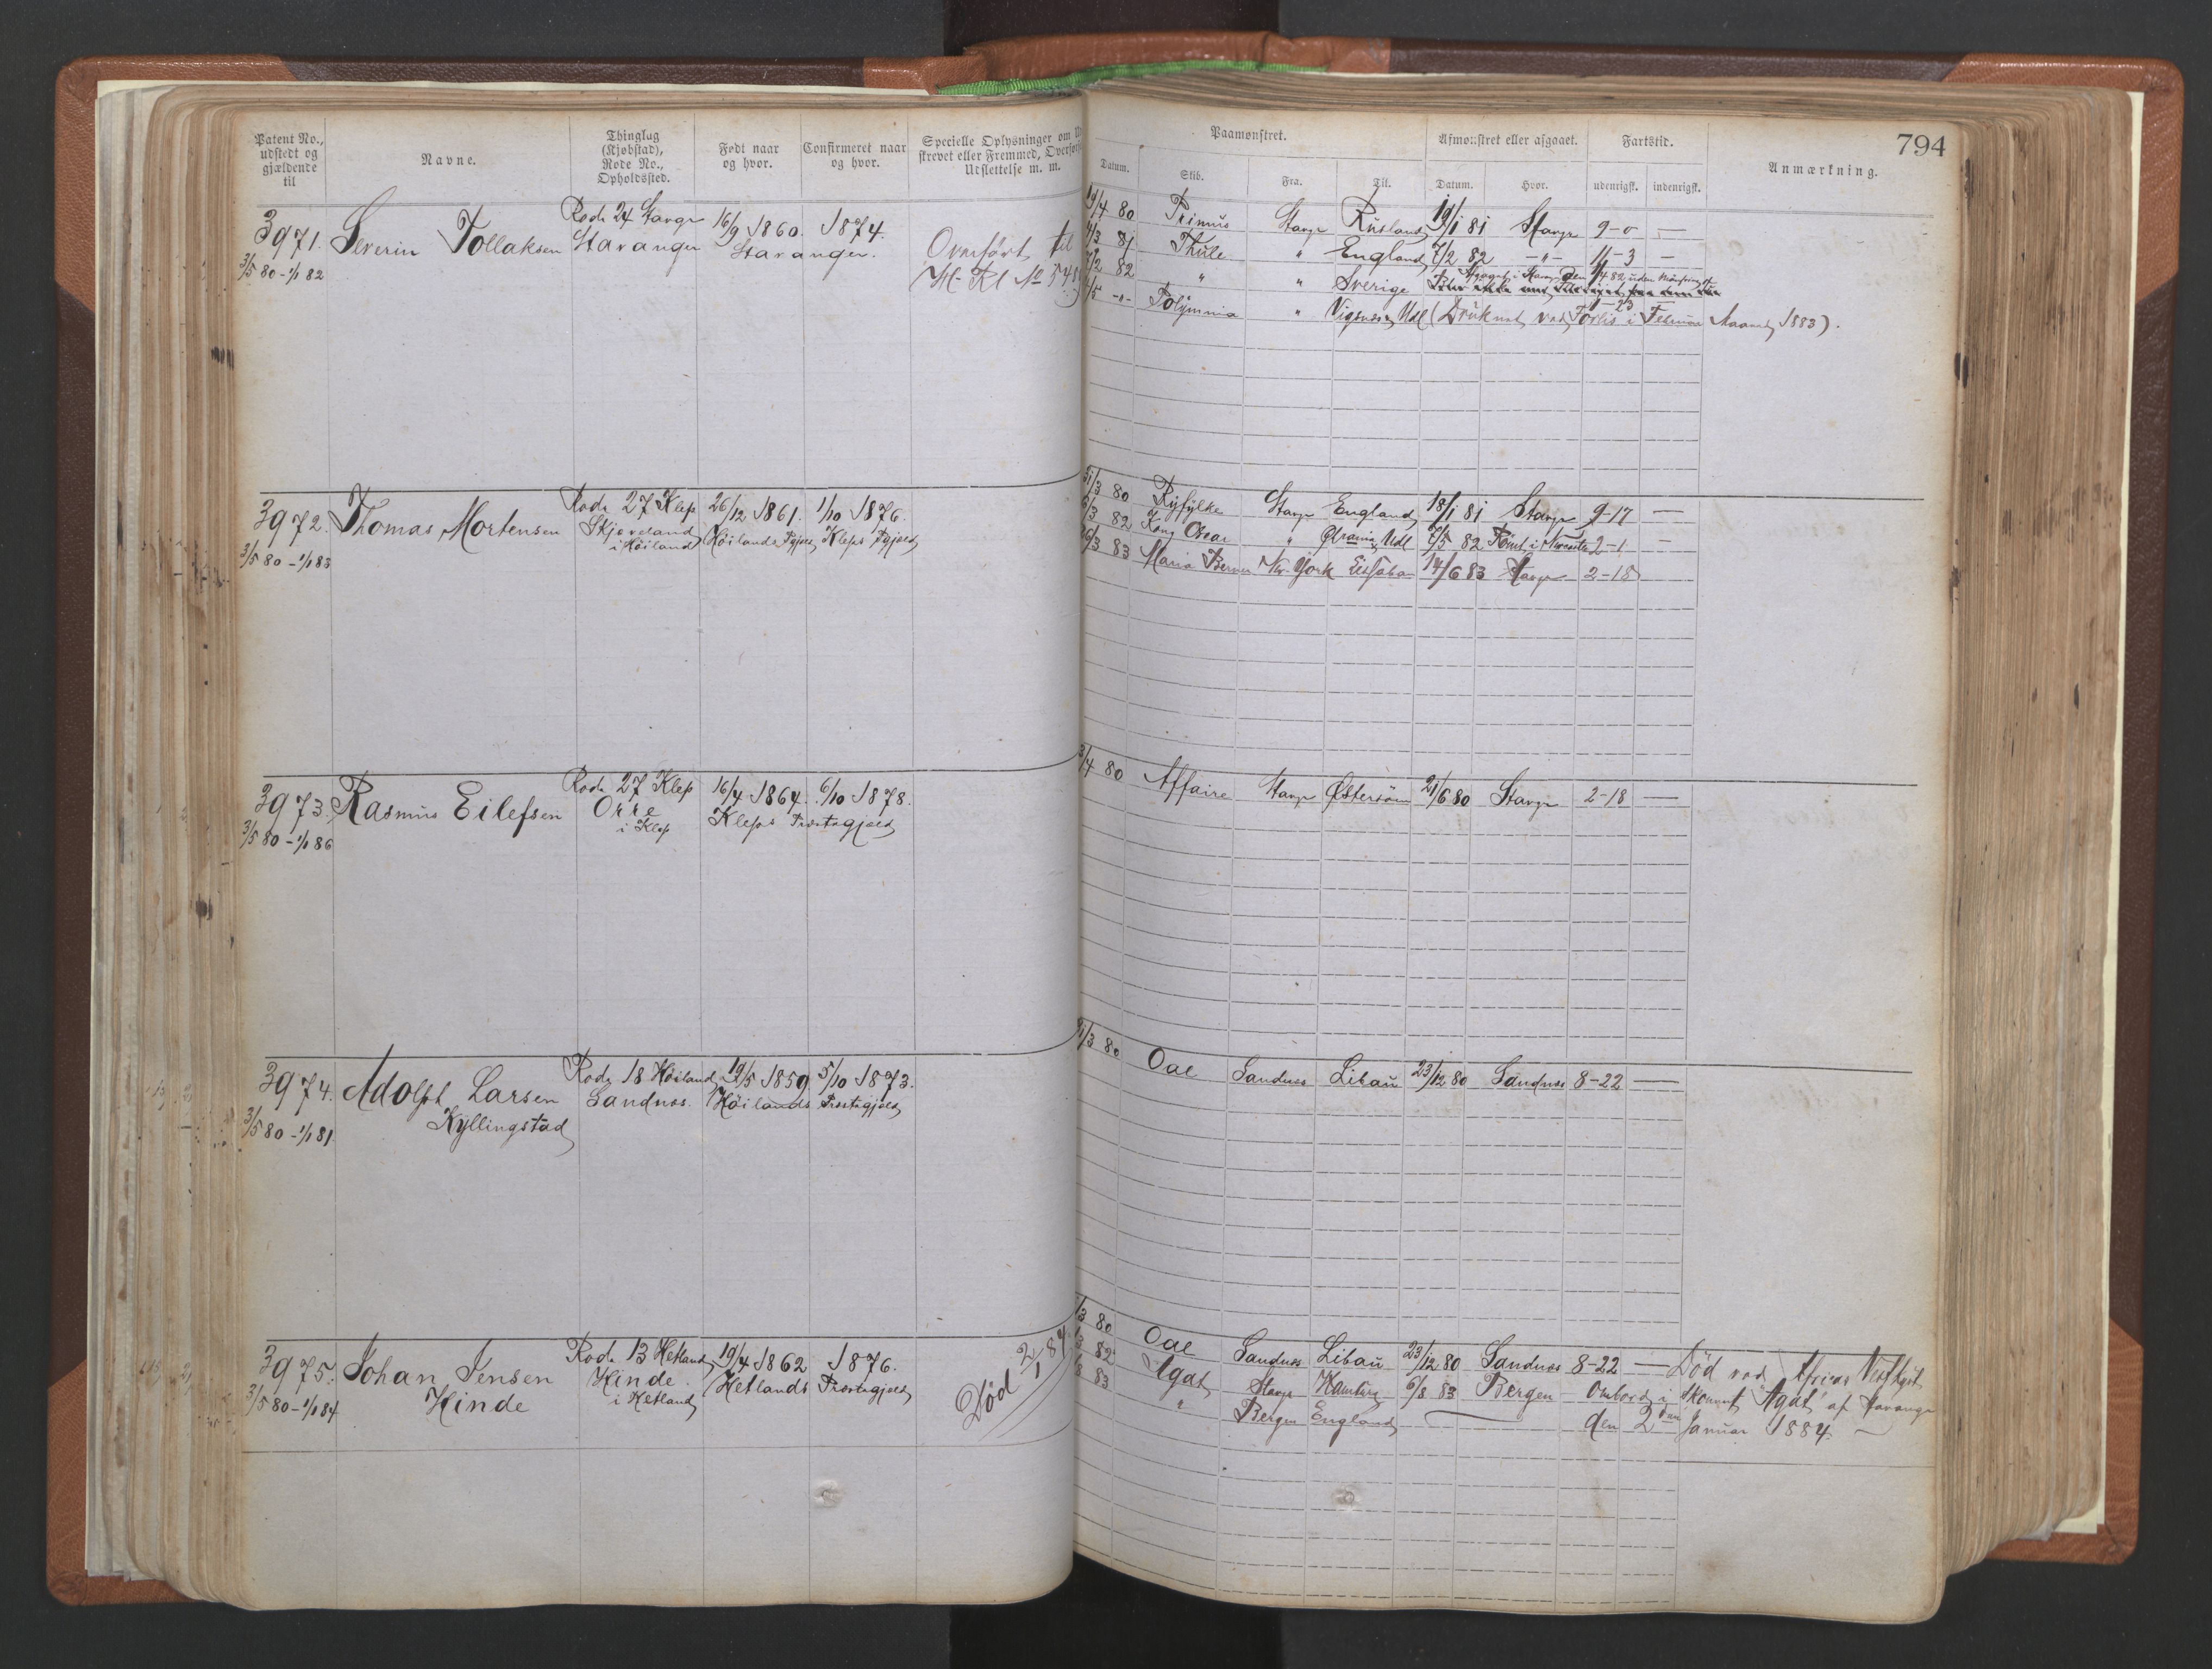 Patent No., udstedt og gjældende til
Navne.
Thinglag (Kjøbstad), Rode No., Opholdssted.
Født naar og hvor.
Confirmeret naar og hvor.
Specielle Oplysninger om
skrevet eller Fremmed,
Udslettelse m. m.
3971.
3/5 80 - 1/1 82
Severin Tollaksen
Rode 24 Stavgr
Stavanger
16/9 1860. 1874.
Stavanger.
Overført til
3972.
3/5 80 - 1/1 83
Thomas Mortensen
Rode 27 Klep
Skjæveland
i Høiland
26/12 1861. 1/10 1876.
Høilands Pgjeld Kleps Pgjeld
3973.
3/5 80 - 1/1 86
Rasmus Eilefsen
Rode 27 Klep
Orre
i Klep
16/4 1864. 6/10 1878.
Kleps Præstegjeld
3974.
3/5 80 - 1/1 81
Adolph Larsen
Kyllingstad
Rode 18 Høiland
Sandnes.
19/5 1859. 5/10 1873.
Høilands Præstegjeld
3975.
3/5 80 - 1/1 84
Johan Jensen
Hinde
Rode 13 Hetland
Hinde.
i Hetland
19/4 1862 1876.
Hetlands Præstegjeld
Død 2/1 84.
794
Paamønstret.
Afmønstret eller afgaaet.
Fartstid.
Anmærkning.
Datum.
Skib.
Fra.
Til.
Datum.
Hvor.
udenrigsk.
indenrigsk.
19/4 80 Primus Stavgr Rusland 19/1 81 Stavgr 9-0 —
/3 81 Thule " England 7/2 82 -"- 11-3 —
7/2 82 " " Sverige
/5 -"- Polymnia " Udl (Druknet ved Forlis i Februar Maaned 1883).
31/3 80 Ryfylke Stavgr England 18/1 81 Stavgr 9-17 —
/3 82 Kong Oscar " Udl /5 82 2-1 —
26/3 83 Maria N. York Lissabon 14/6 83 Stavgr 2-18
3/4 80 Affaire Stavgr Østersøen 21/6 80 Stavgr 2-18 —
1/3 80 Oal Sandnes Libau 23/12 80 Sandnes 8-22 —
/3 80 Oal Sandnes Libau 23/12 80 Sandnes 8-22 — Død ved Africas Vestkyst
82 Agat Stavgr Hamburg 6/8 83 Bergen — ombord i Skonnert "Agat" af Stavanger
/8 83 " Bergen England — den 2den Januar 1884. —